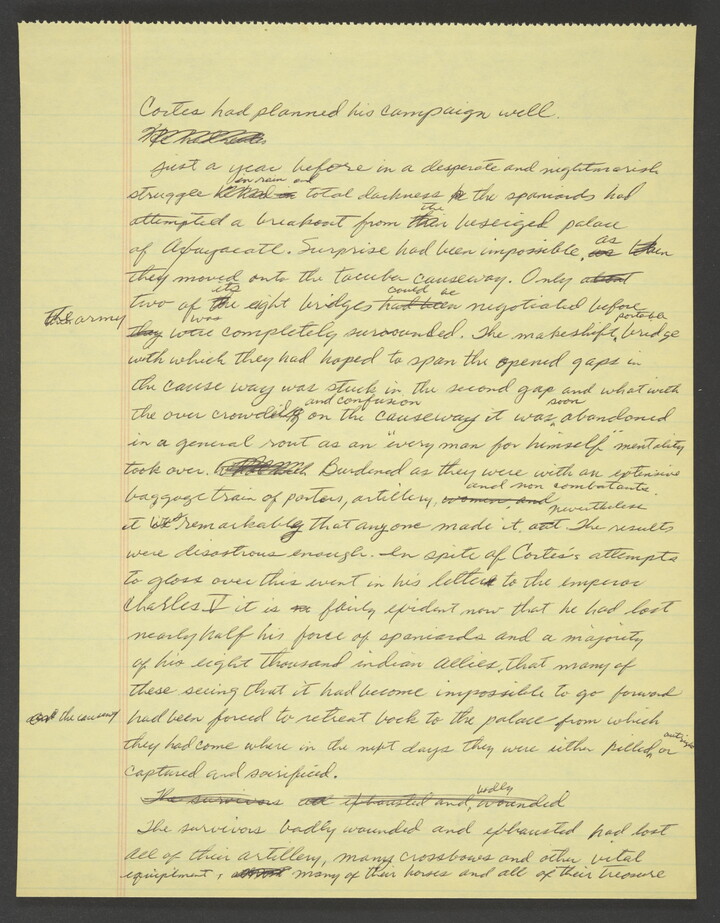 Cortes had planned his campaign well.
Just a year before in a desperate and nightmarish
in rain and
struggle total darkness the spaniards had
the
attempted a breakout from beseiged palace
of Axayacatl. Surprise had been impossible, as
they moved onto the tacuba causeway. Only
its could be
two of the eight bridges had been negotiated before
The army was portable
they were completely surrounded. The makeshift bridge
with which they had hoped to span the opened gaps in
the cause way was stuck in the second gap and what with
and confusion soon
the over crowding on the causeway it was abandoned
in a general rout as an "every man for himself" mentality
took over. Burdened as they were with an extensive
and non combatants.
baggage train of porters, artillery, women, and
nevertheless
it was remarkable that anyone made it out The results
were disastrous enough. In spite of Cortes's attempts
to gloss over this event in his letter to the emperor
Charles V it is fairly evident now that he had lost
nearly half his force of spaniards and a majority
of his eight thousand indian allies, that many of
these seeing that it had become impossible to go forward
the causeway had been forced to retreat back to the palace from which
outright
they had come where in the next days they were either killed, or
captured and sacrificed.
badly
The survivors exhausted and wounded
The survivors badly wounded and exhausted had lost
all of their artillery, many crossbows and other vital
equiptment, many of their horses and all of their treasure